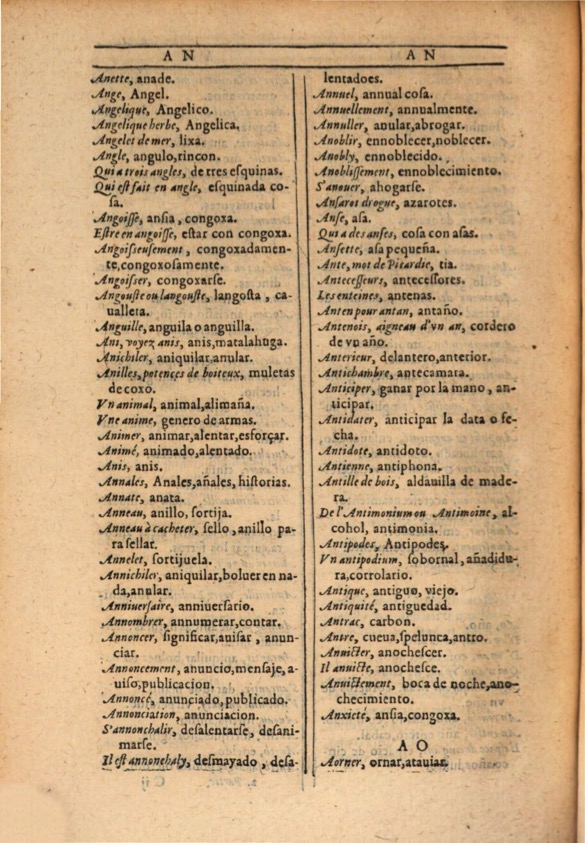 A N
Anette, anade.
Ange, Angel.
Angelique, Angelico.
Angelique herbe, Angelica.
Angelet de mer, lixa.
Angle, angulo, rincon.
Qui a trois angles, de tres esquinas.
Qui eſt fait en angle, eſquinada co-
ſa.
Angoiſſe, anſia, congoxa.
Eſtre en angoiſſe, eſtar con congoxa.
Angoiſſeuſement, congoxadamen-
te, congoxoſamente.
Angoiſſer, congoxarſe.
Angouſte ou langouſte, langoſta, ca-
ualleta.
Anguille, anguila o anguilla.
Ani, voyez anis, anis, matalahuga.
Anichiler, aniquilar, anular.
Anilles, potences de boiteux, muletas
de coxo.
Vn animal, animal, alimaña.
Vne anime, genero de armas.
Animer, animar, alentar, esforçar.
Animé, animado, alentado.
Anis, anis.
Annales, Anales, añales, hiſtorias.
Annate, anata.
Anneau, anillo, ſortija.
Anneau à cacheter, ſello, anillo pa-
ra ſellar.
Annelet, ſortijuela.
Annichiler, aniquilar, boluer en na-
da, anular.
Anniuerſaire, anniuerſario.
Annombrer, annumerar, contar.
Annoncer, ſignificar, auiſar, anun-
ciar.
Annoncement, anuncio, menſaje, a-
uiſo, publicacion.
Annoncé, anunciado, publicado.
Annonciation, anunciacion.
S'annonchalir, deſalentarſe, deſani-
marſe.
Il eſt annonchaly, deſmayado, deſa-
A N
lentadoes.
Annuel, annual coſa.
Annuellement, annualmente.
Annuller, anular, abrogar.
Anoblir, ennoblecer, noblecer.
Anobly, ennoblecido.
Anobliſſement, ennoblecimiento.
S'anouer, ahogarſe.
Anſarot drogue, azarotes.
Anſe, aſa.
Qui a des anſes, coſa con aſas.
Anſette, aſa pequeña.
Ante, mot de Picardie, tia.
Anteceſſeurs, anteceſſores.
Les enteines, antenas.
Anten pour antan, antaño.
Antenois, aigneau d'vn an, cordero
de vn año.
Anterieur, delantero, anterior.
Antichambre, antecamara.
Anticiper, ganar por la mano, an-
ticipar.
Antidater, anticipar la data o fe-
cha.
Antidote, antidoto.
Antienne, antiphona.
Antille de bois, aldauilla de made-
ra.
De l'Antimonium ou Antimoine, al-
cohol, antimonia.
Antipodes, Antipodes.
Vn antipodium, ſobornal, añadidu-
ra, corrolario.
Antique, antiguo, viejo.
Antiquité, antiguedad.
Antrac, carbon.
Antre, cueua, ſpelunca, antro.
Anuicter, anocheſcer.
Il anuicte, anocheſce.
Anuictement, boca de noche, ano-
checimiento.
Anxieté, anſia, congoxa.
A O
Aorner, ornar, atauiar.